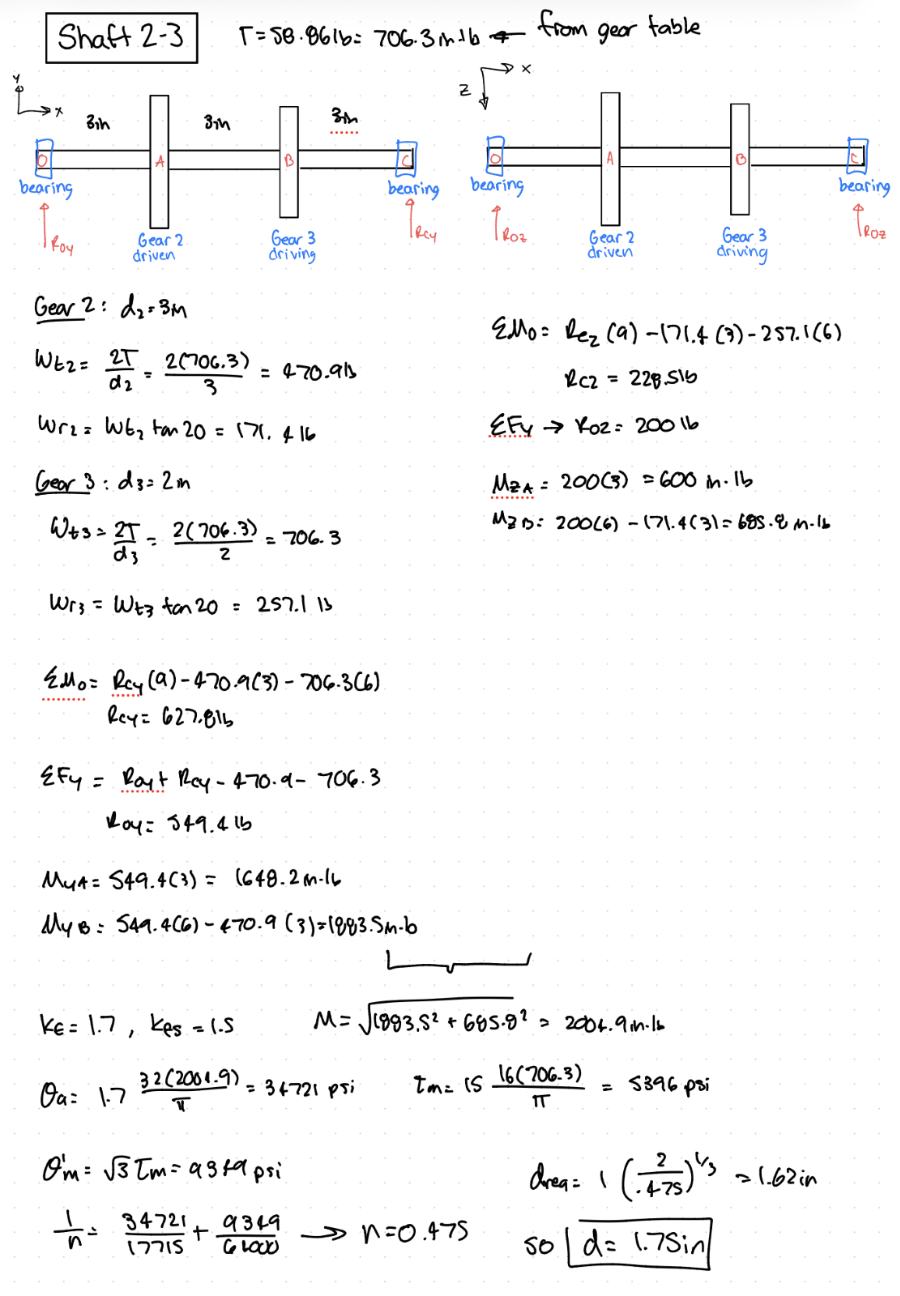 Shaft 2-3 T = 58.86 lb = 706.3 in lb ← from gear table
y x 3in 3in 3in
z x
O A B C
O A B C
bearing bearing bearing bearing
Roy Gear 2 driven Gear 3 driving Rcy
Roz Gear 2 driven Gear 3 driving Roz
Gear 2: d₂ = 3in
Wt2 = 2T/d₂ = 2(706.3)/3 = 470.9lb
Wr2 = Wt2 tan 20 = 171.4 lb
Gear 3: d3 = 2in
Wt3 = 2T/d3 = 2(706.3)/2 = 706.3
Wr3 = Wt3 tan 20 = 257.1 lb
ΣMo = Rcy (9) - 470.9(3) - 706.3(6)
Rcy = 627.8lb
ΣFy = Roy + Rcy - 470.9 - 706.3
Roy = 549.4 lb
MyA = 549.4(3) = 1648.2 in-lb
MyB = 549.4(6) - 470.9 (3) = 1883.5in-b
ΣMo = Rcz (9) - 171.4 (3) - 257.1(6)
Rcz = 228.5lb
ΣFy → Roz = 200 lb
MzA = 200(3) = 600 in·lb
MzB = 200(6) - 171.4(3) = 685.8 in-lb
Kf = 1.7, Kfs = 1.5 M = √1883.5² + 685.8² = 2004.9 in-lb
σa = 1.7 32(2004.9)/π = 34721 psi τm = 1.5 16(706.3)/π = 5396 psi
σ'm = √3 τm = 9349 psi dreq = 1 (2/.475)^1/3 = 1.62in
1/n = 34721/17715 + 9349/61000 → n = 0.475 so d = 1.75in